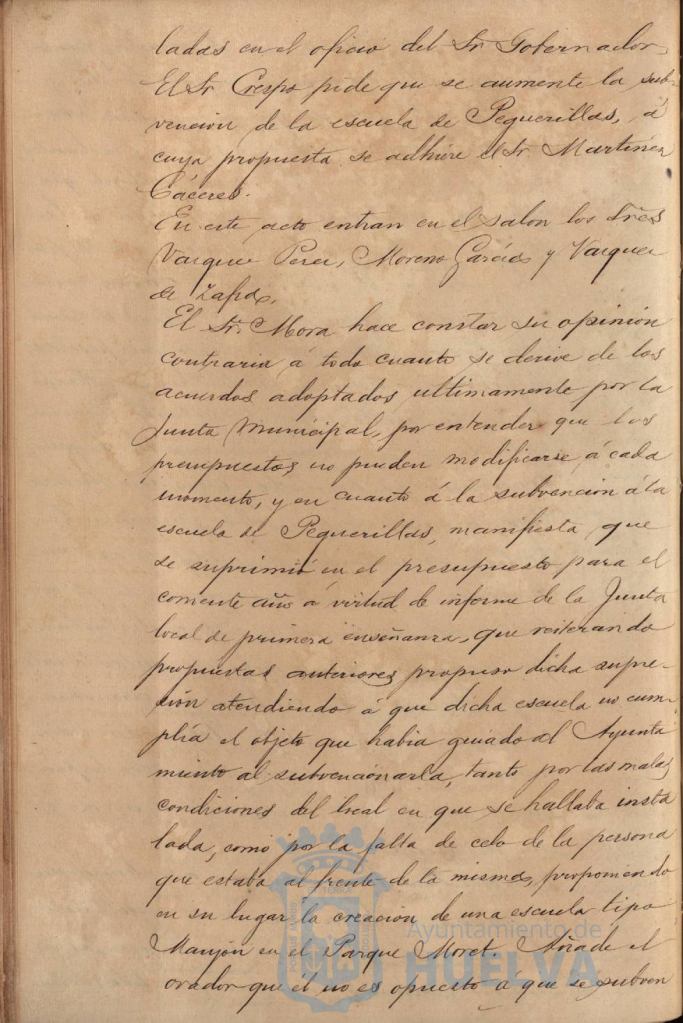 ladas en el oficio del Sr Gobernador
El Sr Crespo pide que se aumente la sub-
vencion de la escuela de Peguerillas, á
cuya propuesta se adhiere el Sr. Martinez
Cáceres.
En este acto entran en el salon los Sres
Vazquez Perez, Moreno Garcia y Vazquez
de Zafra.
El Sr. Mora hace constar su opinión
contraria á todo cuanto se derive de los
acuerdos adoptados ultimamente por la
Junta Municipal, por entender que los
presupuestos no pueden modificarse á cada
momento, y en cuanto á la subvencion a la
escuela de Peguerillas, manifiesta que
se suprimió en el presupuesto para el
corriente año á virtud de informe de la Junta
local de primera enseñanza, que reiterando
propuestas anteriores propuso dicha supre-
sión atendiendo á que dicha escuela no cum-
plía el objeto que habia guiado al Ayunta
miento al subvencionarla, tanto por las malas
condiciones del local en que se hallaba insta
lada, como por la falta de celo de la persona
que estaba al frente de la misma, proponiendo
en su lugar la creación de una escuela tipo
Manjón en el Parque Moret. Añade el
orador que él no es opuesto á que se subven
Ayuntamiento de
HUELVA